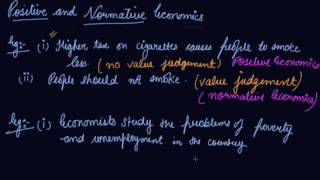 Positive and Normative Economics
Eg:- (i) "Higher tax on cigarettes causes people to smoke
less. (no value judgement) Positive Economics
(ii) People should not smoke. (value judgement)
(normative Economics)
Eg:- (i) Economists study the problems of poverty
and unemployment in the country